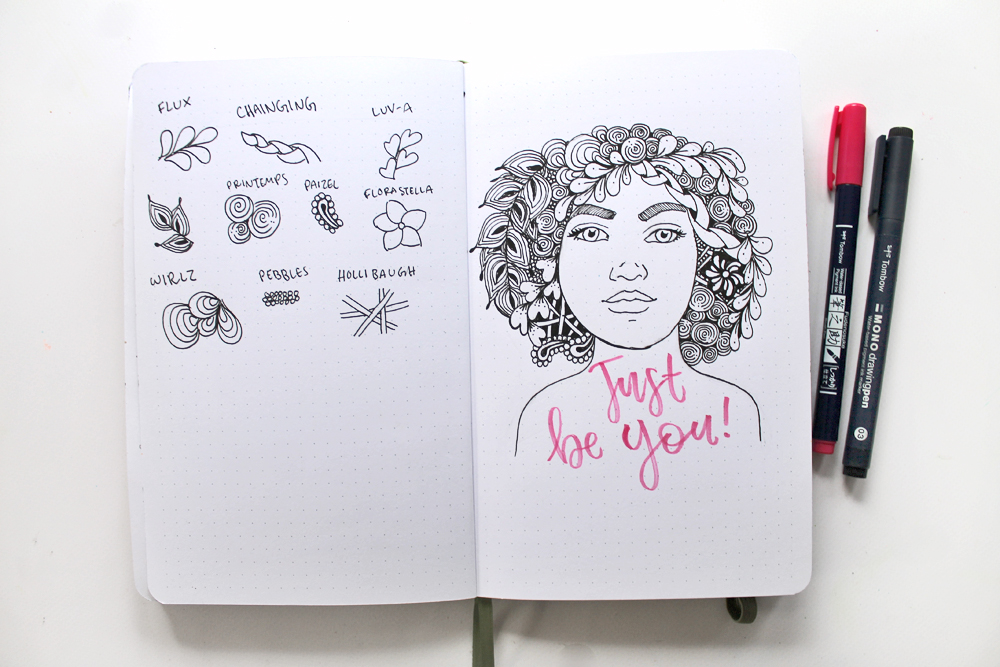 FLUX
CHAINGING
LUV-A
PRINTEMPS
PAIZEL
FLORASTELLA
WIRLZ
PEBBLES
HOLLIBAUGH
Just
be you!
Tombow
Fudenosuke
Tombow
MONO drawing pen
03